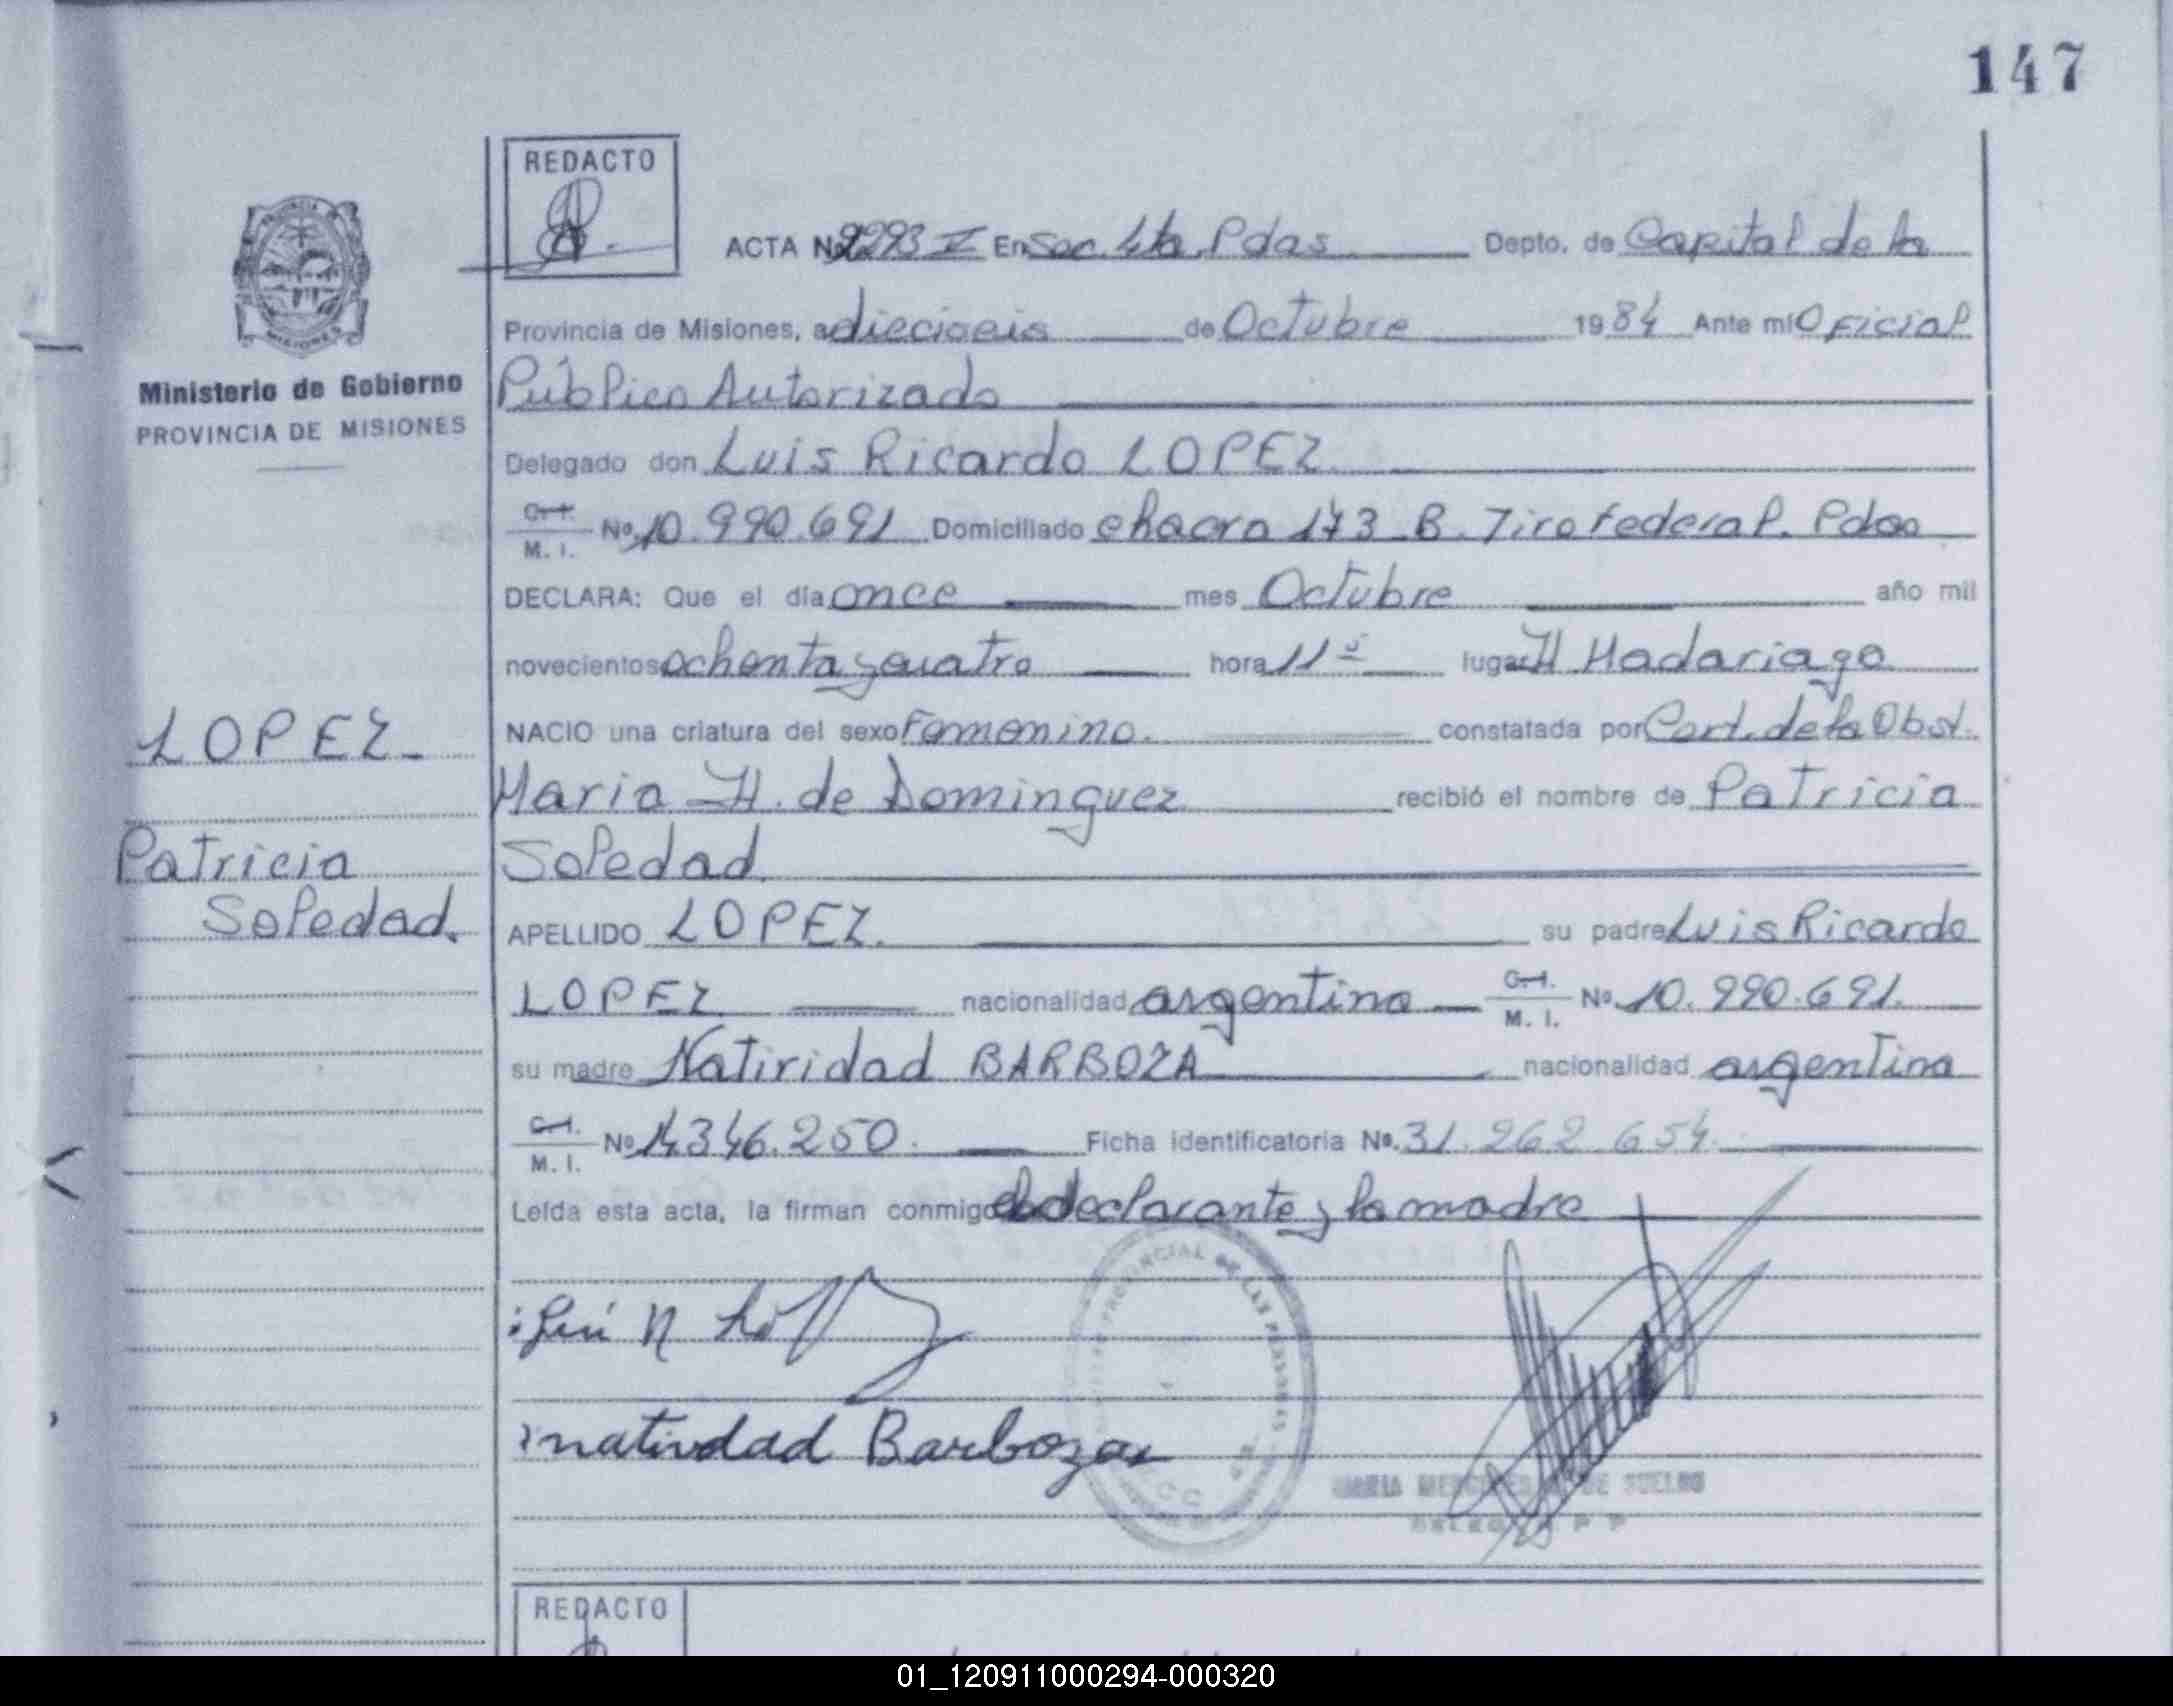 147
REDACTO
ACTA Nº 2293 V En Sec. 4ta. Pdas Depto. de Capital de la
Provincia de Misiones, a dieciseis de Octubre 1984 Ante mí Oficial
Ministerio de Gobierno
PROVINCIA DE MISIONES
Público Autorizado
Delegado don Luis Ricardo LOPEZ
C. I. M. I. Nº 10.990.691 Domiciliado chacra 173 B. Tiro Federal. Pdas
DECLARA: Que el día once mes Octubre año mil
novecientos ochenta y cuatro hora 11 5 lugar H Madariaga
NACIO una criatura del sexo Femenino. constatada por Cert. de la Obst.
Maria H. de Dominguez recibió el nombre de Patricia
Soledad
APELLIDO LOPEZ. su padre Luis Ricardo
LOPEZ nacionalidad argentina C. I. M. I. Nº 10.990.691.
su madre Natiridad BARBOZA nacionalidad argentina
C. I. M. I. Nº 14.346.250. Ficha identificatoria Nº. 31.262.654.
Leída esta acta, la firman conmigo el declarante y la madre
LOPEZ
Patricia
Soledad.
natividad Barboza
PROVINCIAL DE LAS PERSONAS
MARIA MERCEDES DE SUELDO
REDACTO
01_120911000294-000320